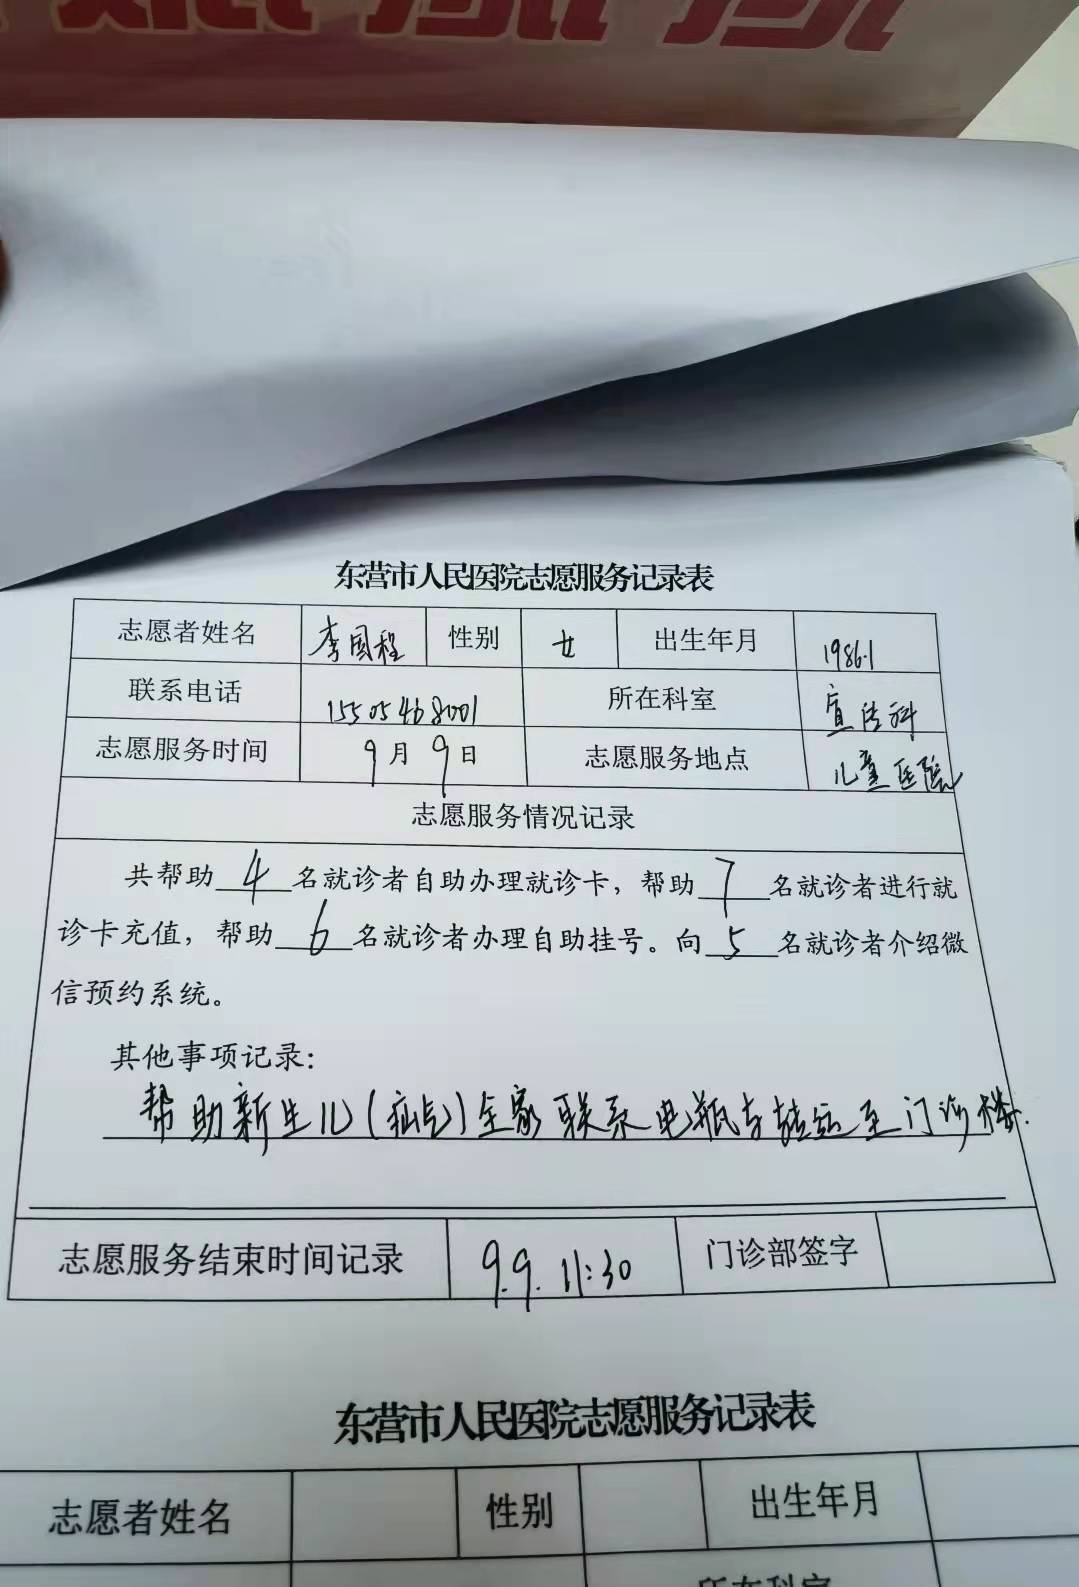 东营市人民医院志愿服务记录表
志愿者姓名 李国程 性别 女 出生年月 1986.1
联系电话 15505468001 所在科室 宣传科
志愿服务时间 9月9日 志愿服务地点 儿童医院
志愿服务情况记录
共帮助4名就诊者自助办理就诊卡，帮助7名就诊者进行就
诊卡充值，帮助6名就诊者办理自助挂号。向5名就诊者介绍微
信预约系统。
其他事项记录：
帮助新生儿( )全家联系电瓶车转运至门诊楼.
志愿服务结束时间记录 9.9. 11:30 门诊部签字
东营市人民医院志愿服务记录表
志愿者姓名 性别 出生年月
所在科室